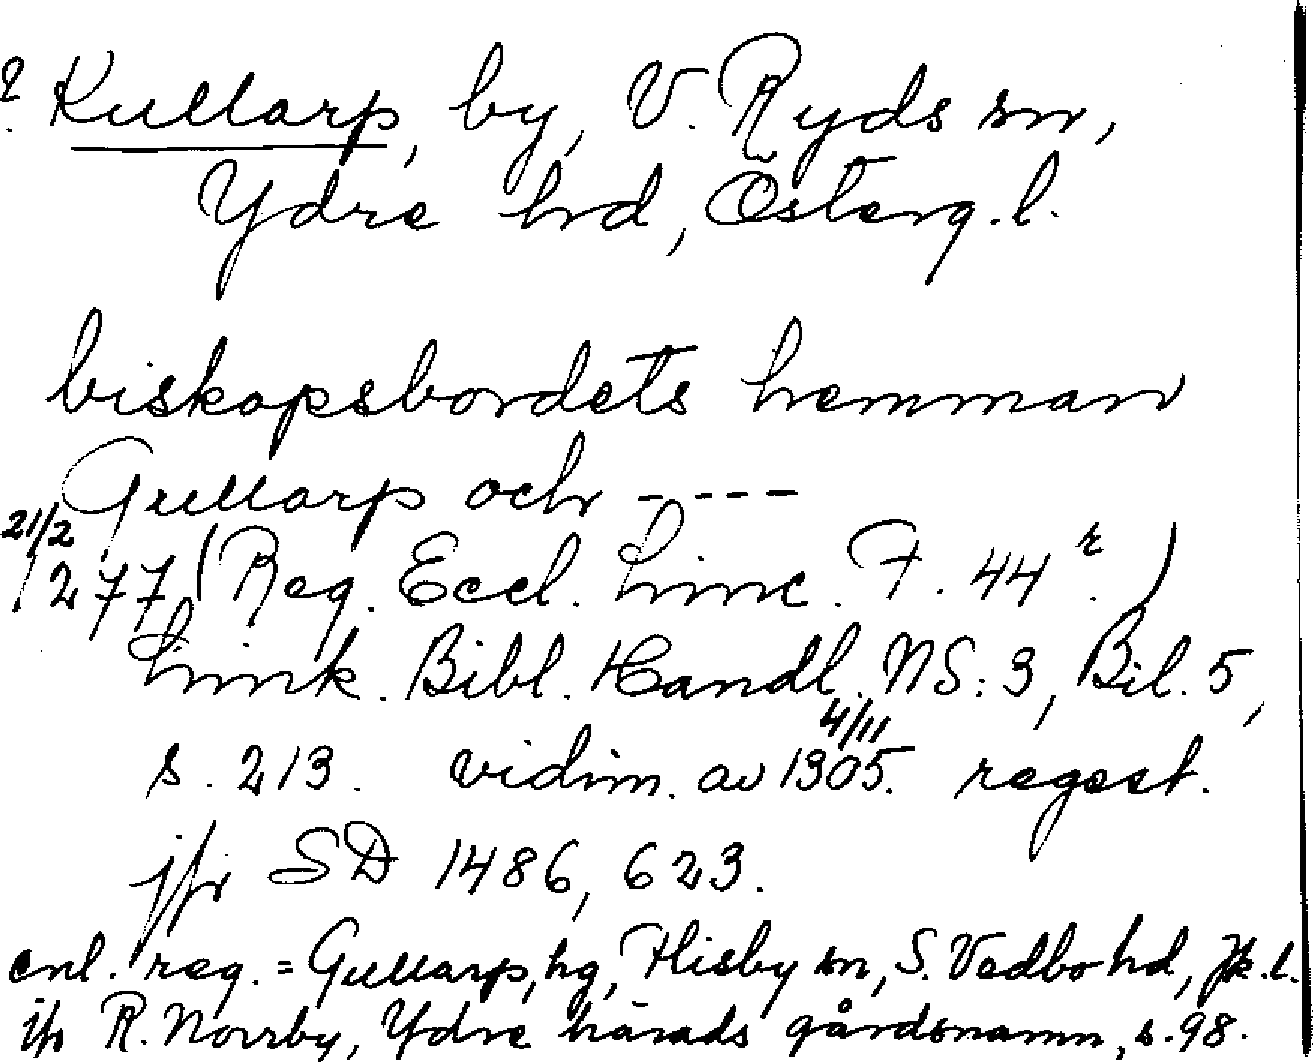 ? Kullarp, by, V. Ryds sn,
Ydre hd, Österg. l.
biskopsbordets hemman
Gullarp och ----
21/2
1277 (Reg. Eccl. Linc. F. 44 r.)
Link. Bibl. Handl. NS: 3, Bil. 5,
s. 213. vidim. av 4/11 1305. regest.
jfr SD 1486, 623.
enl. reg. = Gullarp, hg, Flisby sn, S. Vedbo hd, Jk. l.
jfr R. Norrby, Ydre härads gårdsnamn, s. 98.